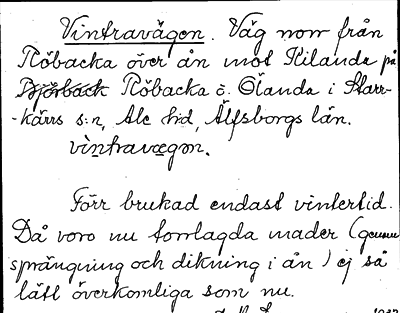 Vintravägen. Väg norr från
Röbacka över ån mot Kilanda på
Röbacka ö. Ölanda i Starr-
-kärrs s:n, Ale h:d, Älfsborgs län.
vintravægən.
Förr brukad endast vintertid.
Då voro nu torrlagda mader (genom
sprängning och dikning i ån) ej så
lätt överkomliga som nu.